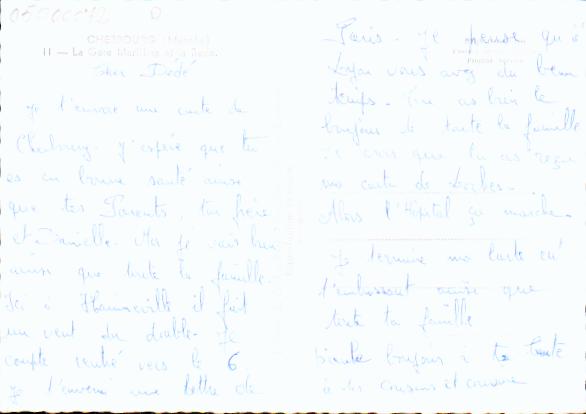 05500072 D
CHERBOURG (Manche)
11 — La Gare Maritime et la Rade.
Cher Dédé
Je t'envoie une carte de
Cherbourg. J'espère que tu
es en bonne santé ainsi
que tes Parents, ton frère
et Danielle. Moi je vais bien
ainsi que toute la famille.
Ici à Hainneville il fait
un vent du diable. Je
compte rentré vers le 6
Je t'enverai une lettre de
Paris. Je pense qu'à
Lyon vous avez du beau
temps. Tu as bien le
bonjour de toute la famille
Je crois que tu as reçu
ma carte de
Alors l'Hôpital ça marche.
Je termine ma carte en
t'embrassant ainsi que
toute ta famille
bonjour à toute
à tes cousins et cousine